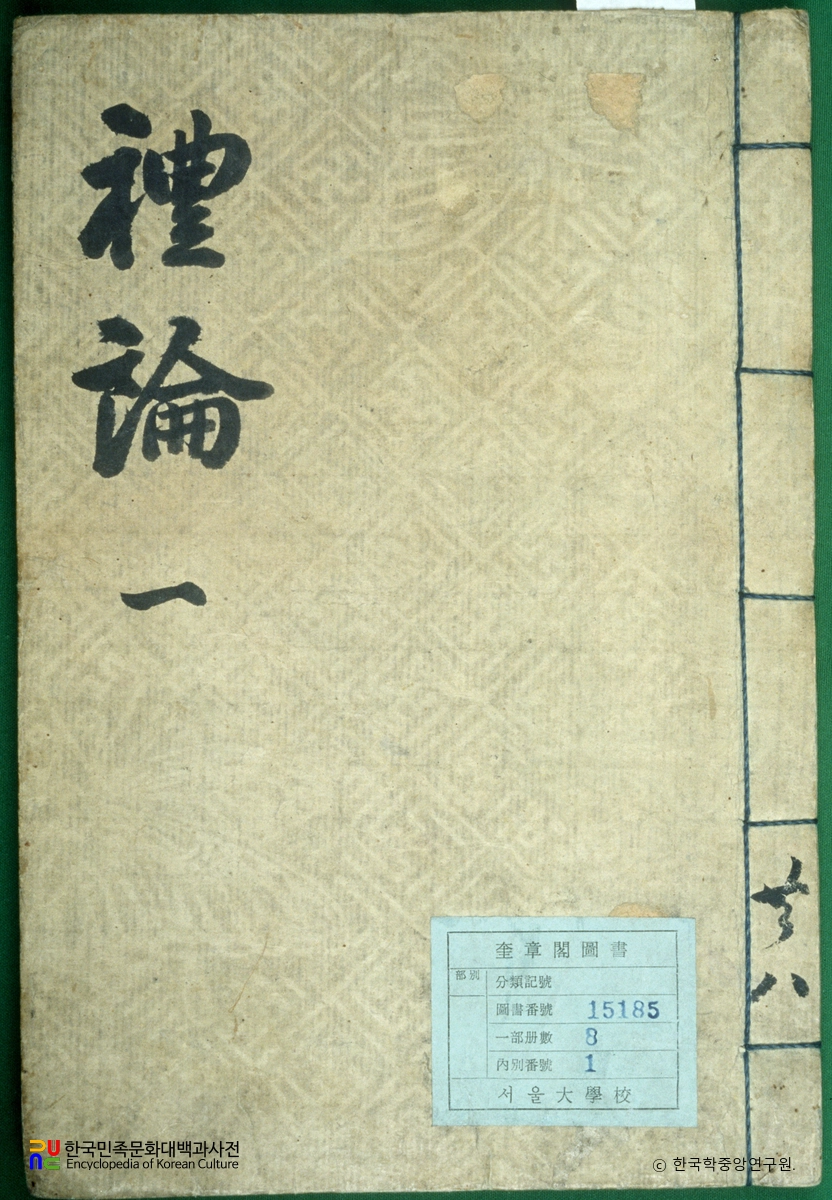 禮論
一
共八
奎章閣圖書
部別
分類記號
圖書番號 15185
一部册數 8
內別番號 1
서울大學校
한국민족문화대백과사전
Encyclopedia of Korean Culture
© 한국학중앙연구원.